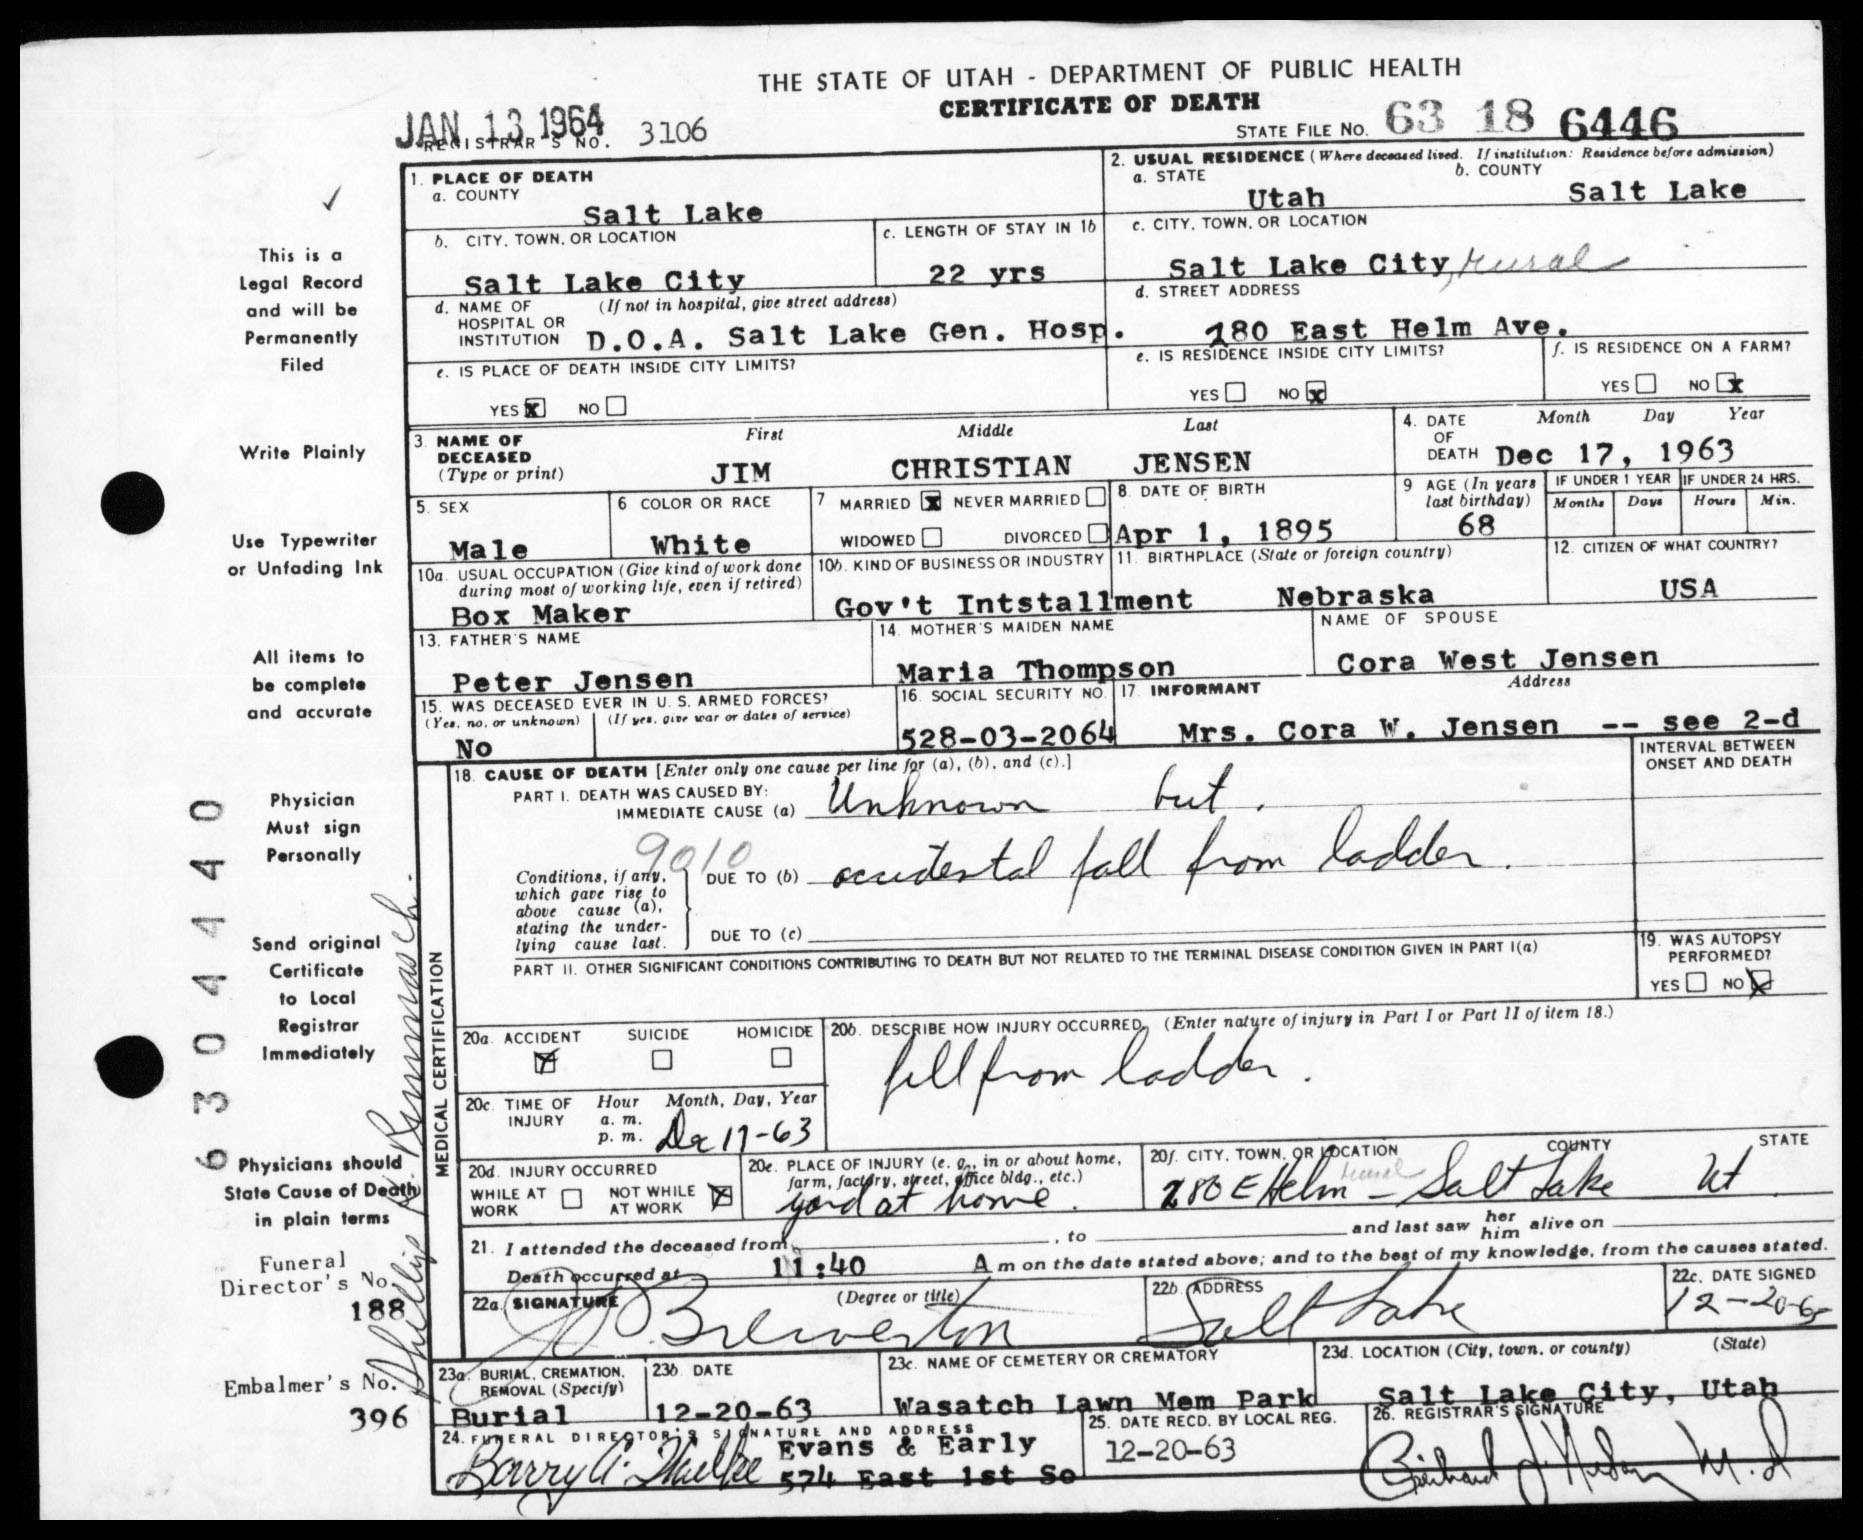 THE STATE OF UTAH - DEPARTMENT OF PUBLIC HEALTH
CERTIFICATE OF DEATH
JAN 13 1964
REGISTRAR'S NO. 3106
STATE FILE NO. 63 18 6446
1. PLACE OF DEATH
a. COUNTY
Salt Lake
2. USUAL RESIDENCE (Where deceased lived. If institution: Residence before admission)
a. STATE
Utah
b. COUNTY
Salt Lake
b. CITY, TOWN, OR LOCATION
Salt Lake City
c. LENGTH OF STAY IN 1b
22 yrs
c. CITY, TOWN, OR LOCATION
Salt Lake City, rural
d. NAME OF HOSPITAL OR INSTITUTION (If not in hospital, give street address)
D.O.A. Salt Lake Gen. Hosp.
d. STREET ADDRESS
280 East Helm Ave.
e. IS PLACE OF DEATH INSIDE CITY LIMITS?
YES x NO
e. IS RESIDENCE INSIDE CITY LIMITS?
YES NO x
f. IS RESIDENCE ON A FARM?
YES NO x
3. NAME OF DECEASED (Type or print)
First Middle Last
JIM CHRISTIAN JENSEN
4. DATE OF DEATH
Month Day Year
Dec 17, 1963
5. SEX
Male
6 COLOR OR RACE
White
7 MARRIED x NEVER MARRIED
WIDOWED DIVORCED
8. DATE OF BIRTH
Apr 1, 1895
9 AGE (In years last birthday)
68
IF UNDER 1 YEAR
Months Days
IF UNDER 24 HRS.
Hours Min.
10a. USUAL OCCUPATION (Give kind of work done during most of working life, even if retired)
Box Maker
10b. KIND OF BUSINESS OR INDUSTRY
Gov't Intstallment
11. BIRTHPLACE (State or foreign country)
Nebraska
12. CITIZEN OF WHAT COUNTRY?
USA
13. FATHER'S NAME
Peter Jensen
14. MOTHER'S MAIDEN NAME
Maria Thompson
NAME OF SPOUSE
Cora West Jensen
15. WAS DECEASED EVER IN U. S. ARMED FORCES?
(Yes, no, or unknown) (If yes, give war or dates of service)
No
16. SOCIAL SECURITY NO.
528-03-2064
17. INFORMANT Address
Mrs. Cora W. Jensen -- see 2-d
MEDICAL CERTIFICATION
18. CAUSE OF DEATH [Enter only one cause per line for (a), (b), and (c).]
INTERVAL BETWEEN ONSET AND DEATH
PART I. DEATH WAS CAUSED BY:
IMMEDIATE CAUSE (a) Unknown but.
9010
Conditions, if any, which gave rise to above cause (a), stating the underlying cause last.
DUE TO (b) accidental fall from ladder.
DUE TO (c)
PART II. OTHER SIGNIFICANT CONDITIONS CONTRIBUTING TO DEATH BUT NOT RELATED TO THE TERMINAL DISEASE CONDITION GIVEN IN PART I(a)
19. WAS AUTOPSY PERFORMED?
YES NO x
20a. ACCIDENT SUICIDE HOMICIDE
x
20b. DESCRIBE HOW INJURY OCCURRED. (Enter nature of injury in Part I or Part II of item 18.)
fell from ladder.
20c. TIME OF INJURY
Hour Month, Day, Year
a. m.
p. m. Dec 17-63
20d. INJURY OCCURRED
WHILE AT WORK NOT WHILE AT WORK x
20e. PLACE OF INJURY (e. g., in or about home, farm, factory, street, office bldg., etc.)
yard at home.
20f. CITY, TOWN, OR LOCATION COUNTY STATE
rural
280 E Helm - Salt Lake Ut
21. I attended the deceased from , to and last saw her him alive on
Death occurred at 11:40 A m on the date stated above; and to the best of my knowledge, from the causes stated.
22a. SIGNATURE (Degree or title)
Brewerton
22b. ADDRESS
Salt Lake
22c. DATE SIGNED
12-20-63
23a. BURIAL, CREMATION, REMOVAL (Specify)
Burial
23b DATE
12-20-63
23c. NAME OF CEMETERY OR CREMATORY
Wasatch Lawn Mem Park
23d. LOCATION (City, town, or county) (State)
Salt Lake City, Utah
24. FUNERAL DIRECTOR'S SIGNATURE AND ADDRESS
Evans & Early
574 East 1st So
25. DATE RECD. BY LOCAL REG.
12-20-63
26. REGISTRAR'S SIGNATURE
M.D
This is a
Legal Record
and will be
Permanently
Filed
Write Plainly
Use Typewriter
or Unfading Ink
All items to
be complete
and accurate
Physician
Must sign
Personally
Send original
Certificate
to Local
Registrar
Immediately
Physicians should
State Cause of Death
in plain terms
Funeral
Director's No.
188
Embalmer's No.
396
6304440